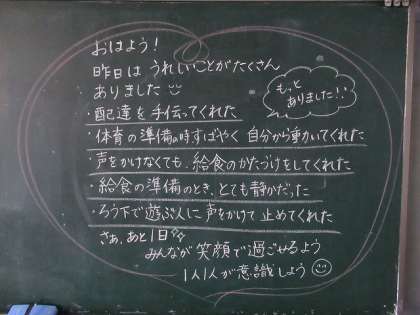 おはよう!
昨日は うれしいことがたくさん
ありました
もっと
ありました!!
・配達を手伝ってくれた
・体育の準備の時すばやく 自分から動いてくれた
・声をかけなくても、給食のかたづけをしてくれた
・給食の準備のとき、とても静かだった
・ろう下で遊ぶ人に声をかけて 止めてくれた
さぁ、あと1日
みんなが笑顔で過ごせるよう
1人1人が意識しよう